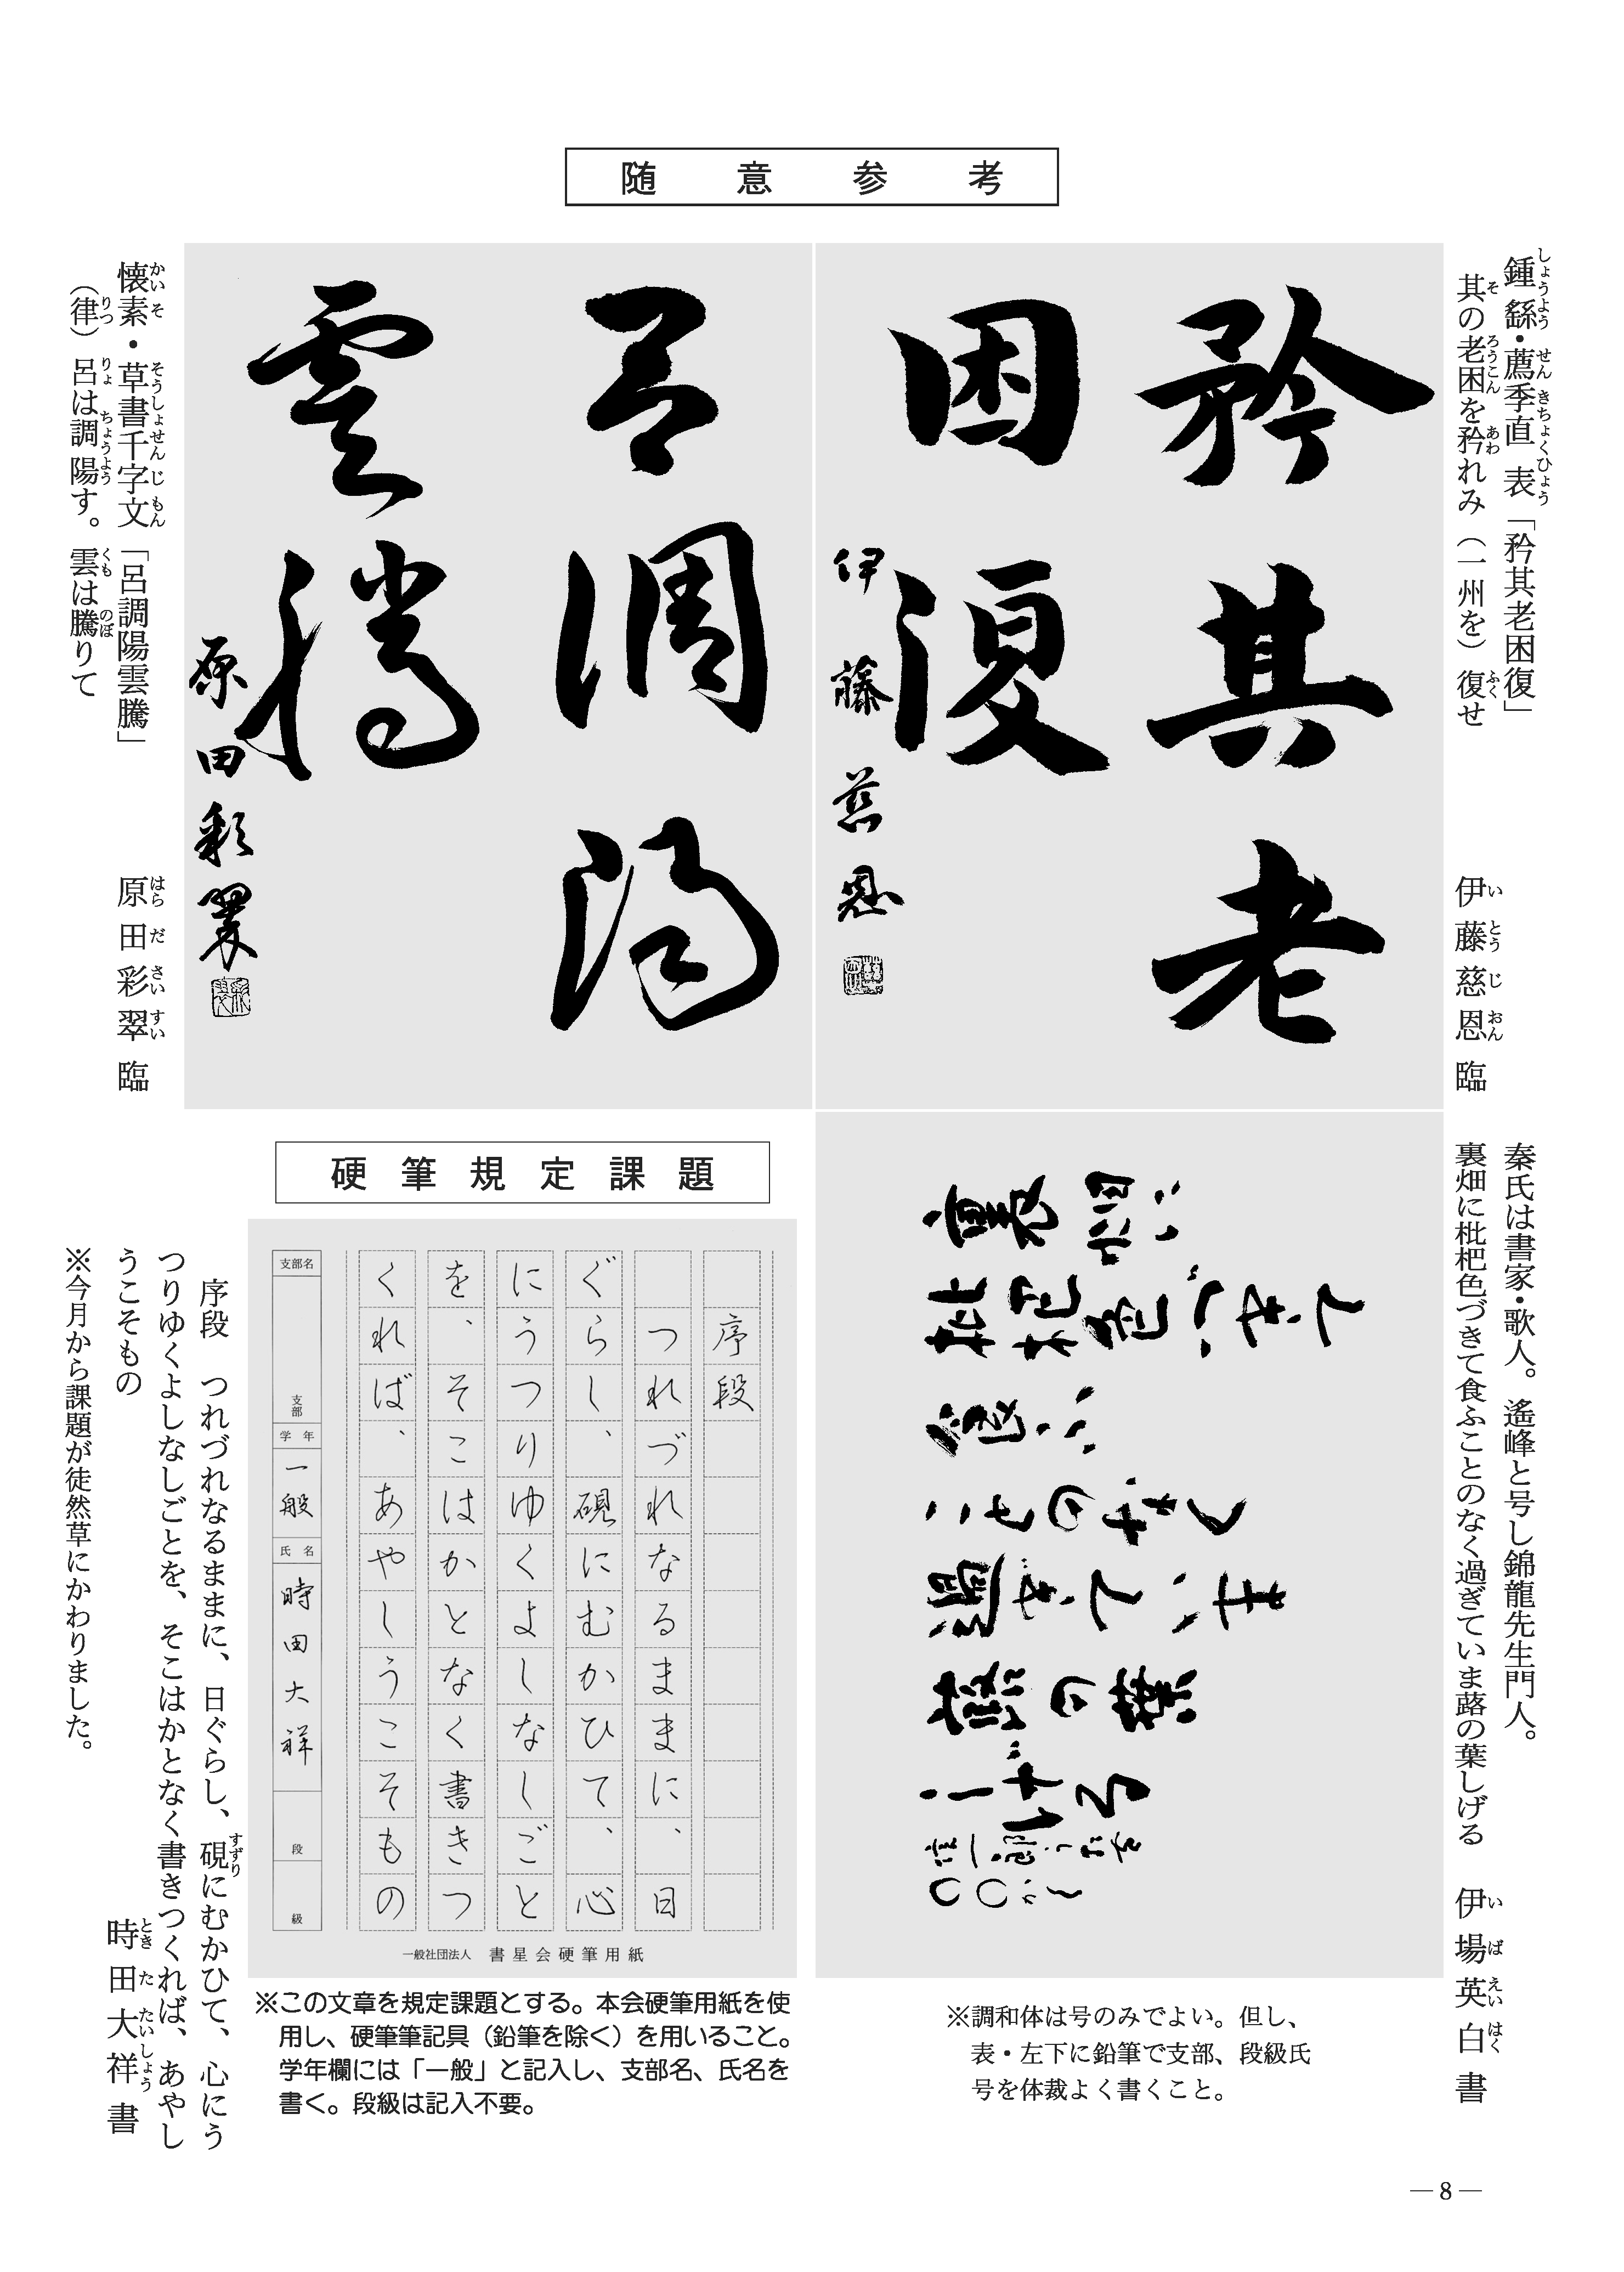 随意参考
鍾繇・薦季直表「矜其老困復」
其の老困を矜れみ（一州を）復せ
伊藤慈恩臨
矜其老
困復
伊藤慈恩
呂調陽
雲騰
原田彩翠
懐素・草書千字文「呂調陽雲騰」
（律）呂は調陽す。雲は騰りて
原田彩翠臨
秦氏は書家・歌人。遙峰と号し錦龍先生門人。
裏畑に枇杷色づきて食ふことのなく過ぎていま蕗の葉しげる
伊場英白書
※調和体は号のみでよい。但し、
表・左下に鉛筆で支部、段級氏
号を体裁よく書くこと。
硬筆規定課題
序段
つれづれなるままに、日
ぐらし、硯にむかひて、心
にうつりゆくよしなしごと
を、そこはかとなく書きつ
くれば、あやしうこそもの
支部名
支部
学年
一般
氏名
時田大祥
段
級
一般社団法人 書星会硬筆用紙
※この文章を規定課題とする。本会硬筆用紙を使
用し、硬筆筆記具（鉛筆を除く）を用いること。
学年欄には「一般」と記入し、支部名、氏名を
書く。段級は記入不要。
序段 つれづれなるままに、日ぐらし、硯にむかひて、心にう
つりゆくよしなしごとを、そこはかとなく書きつくれば、あやし
うこそもの
時田大祥書
※今月から課題が徒然草にかわりました。
― 8 ―